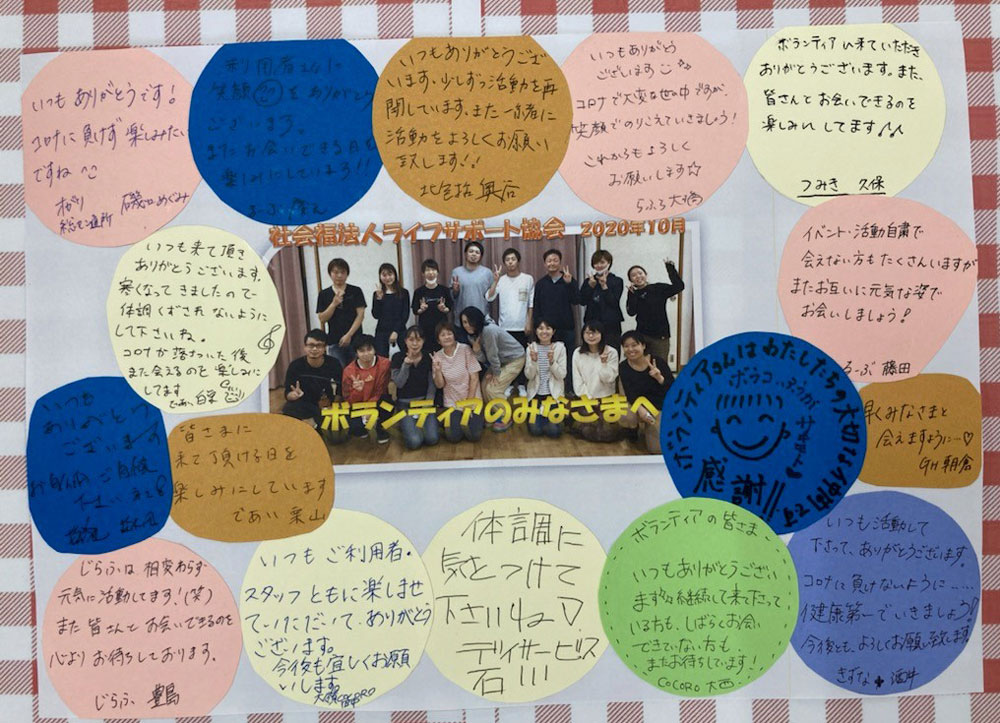 いつもありがとうです!
コロナに負けず楽しみたい
ですね
総合通所 磯口めぐみ
利用者さんに
笑顔をありがとう
ございます。
またお会いできる日を
楽しみにしています!!
いつもありがとうござ
います。少しずつ活動を再
開しています。また一緒に
活動をよろしくお願い
致します!!
北包括 奥谷
いつもありがとう
ございます
コロナで大変な世の中ですが、
笑顔でのりこえていきましょう!
これからもよろしく
お願いします☆
ボランティアに来ていただき
ありがとうございます。また、
皆さんとお会いできるのを
楽しみにしてます♪♪
つみき 久保
いつも来て頂き
ありがとうございます。
寒くなってきましたので
体調くずされないように
して下さいね。
コロナが落ちついた後
また会えるのを楽しみに
してます
であい
社会福法人ライフサポート協会 2020年10月
ボランティアのみなさまへ
イベント・活動自粛で
会えない方もたくさんいますが
またお互いに元気な姿で
お会いしましょう!
るーぶ 藤田
いつも
ありがとう
ございます
皆さまに
来て頂ける日を
楽しみにしています
であい 栗山
ボランティアさんはわたしたちの大切な
感謝!!
早くみなさまと
会えますように…♡
GH 朝倉
じらふは相変わらず
元気に活動してます!(笑)
また皆さんとお会いできるのを
心よりお待ちしております。
じらふ 豊島
いつもご利用者・
スタッフともに楽しませ
ていただいて、ありがとう
ございます。
今後も宜しくお願
いします
体調に
気をつけて
下さいね♡
デイサービス
石川
ボランティアの皆さま
いつもありがとうござい
ます♪継続して来て下さって
いる方も、しばらくお会い
できてない方も
またお待ちしています!
COCORO 大西
いつも活動して
下さって、ありがとうございます。
コロナに負けないように……
健康第一でいきましょう!
今後とも、よろしくお願い致します。
きずな 酒井